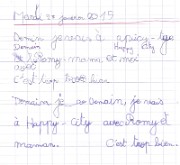 Mardi 20 janvier 2015
Demin je vais à apicy-tge
Demain Happy City
Romy mama et mei
avec
C'est trop bien
Demain je Demain, je vais
à Happy-City avec Romy et
maman. C'est trop bien.